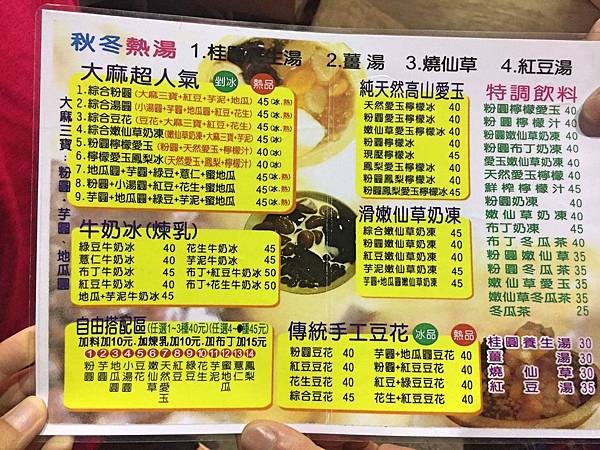 秋冬熱湯 1.桂圓養生湯 2.薑湯 3.燒仙草 4.紅豆湯
大麻超人氣 剉冰 熱品
1.綜合粉圓(大麻三寶+紅豆+芋泥+地瓜) 45(冰.熱)
2.綜合湯圓(小湯圓+芋圓+地瓜圓+紅豆+花生) 45(冰.熱)
3.綜合豆花(豆花+大麻三寶+紅豆+花生) 45(冰.熱)
4.綜合嫩仙草奶凍(嫩仙草奶凍+大麻三寶+芋泥) 45(冰)
5.粉圓檸檬愛玉(粉圓+天然愛玉+檸檬汁) 40(冰)
6.檸檬愛玉鳳梨冰(天然愛玉+鳳梨+檸檬汁) 40(冰)
7.地瓜圓+芋圓+綠豆+薏仁+蜜地瓜 45(冰.熱)
8.粉圓+小湯圓+紅豆+花生+蜜地瓜 45(冰.熱)
9.芋圓+地瓜圓+綠豆+芋泥+蜜地瓜 45(冰.熱)
大麻三寶:粉圓、芋圓、地瓜圓
牛奶冰(煉乳)
綠豆牛奶冰 40 花生牛奶冰 45
薏仁牛奶冰 40 芋泥牛奶冰 45
布丁牛奶冰 40 布丁+紅豆牛奶冰 50
紅豆牛奶冰 40 布丁+花生牛奶冰 50
地瓜+芋泥牛奶冰 45
自由搭配區(任選1~3種40元)(任選4~●種45元)
加料加10元.加煉乳加10元.加布丁加15元
1 2 3 4 5 6 7 8 9 10 11 12 13 14
粉圓
芋圓
地瓜圓
小湯圓
豆花
嫩仙草
天然愛玉
紅豆
綠豆
花生
芋泥
蜜地瓜
薏仁
鳳梨
純天然高山愛玉
天然愛玉檸檬冰 40
粉圓愛玉檸檬冰 40
粉圓檸檬冰 40
現壓檸檬冰 40
粉圓鳳梨檸檬冰 40
粉圓鳳梨愛玉檸檬冰 45
滑嫩仙草奶凍
綜合嫩仙草奶凍 45
粉圓嫩仙草奶凍 40
紅豆嫩仙草奶凍 40
芋泥嫩仙草奶凍 45
芋圓+地瓜圓嫩仙草奶凍 45
傳統手工豆花 冰品 熱品
粉圓豆花 40 芋圓+地瓜圓豆花 40
紅豆豆花 40 粉圓+紅豆豆花 40
花生豆花 40 紅豆+綠豆豆花 40
綜合豆花 45 花生+紅豆豆花 40
特調飲料
粉圓檸檬愛玉 40
粉圓檸檬汁 40
粉圓嫩仙草奶凍 40
粉圓布丁奶凍 40
愛玉嫩仙草奶凍 40
天然愛玉檸檬 40
鮮榨檸檬汁 45
粉圓奶凍 40
嫩仙草奶凍 40
布丁奶凍 40
布丁冬瓜茶 40
粉圓嫩仙草 35
粉圓冬瓜茶 35
嫩仙草愛玉 35
嫩仙草冬瓜茶 35
冬瓜茶 25
桂圓養生湯 30
薑湯 30
燒仙草 35
紅豆湯 35